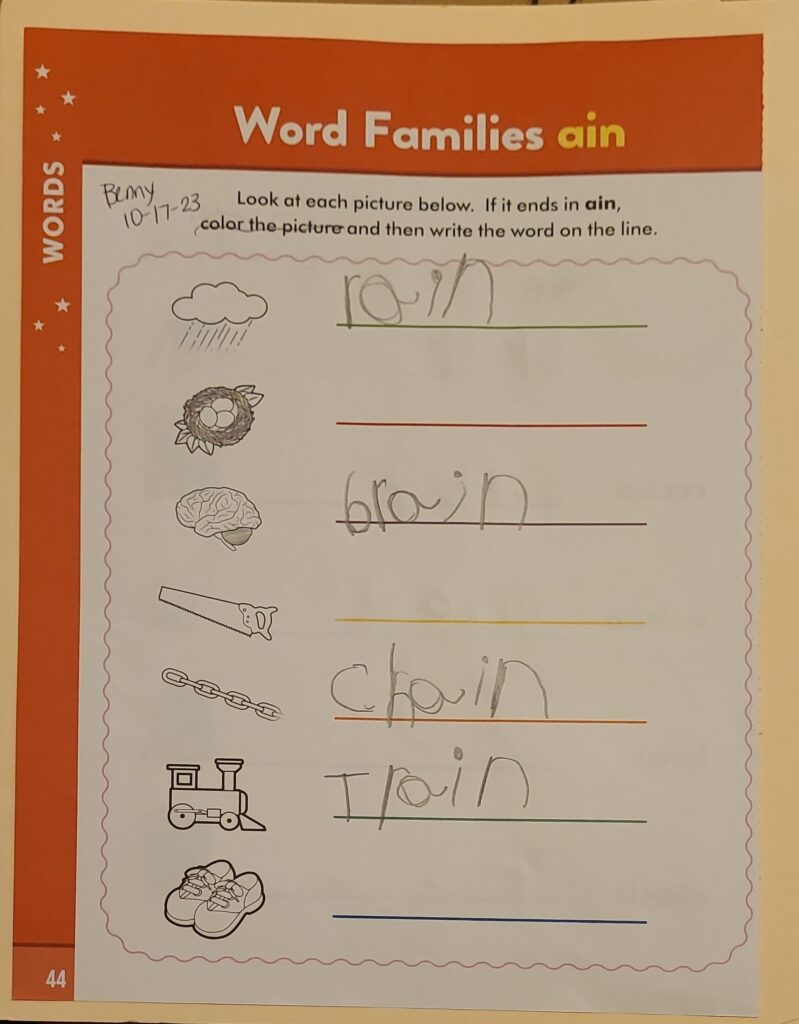 Word Families ain
WORDS
Benny
10-17-23
Look at each picture below. If it ends in ain,
color the picture and then write the word on the line.
rain
brain
chain
Train
44